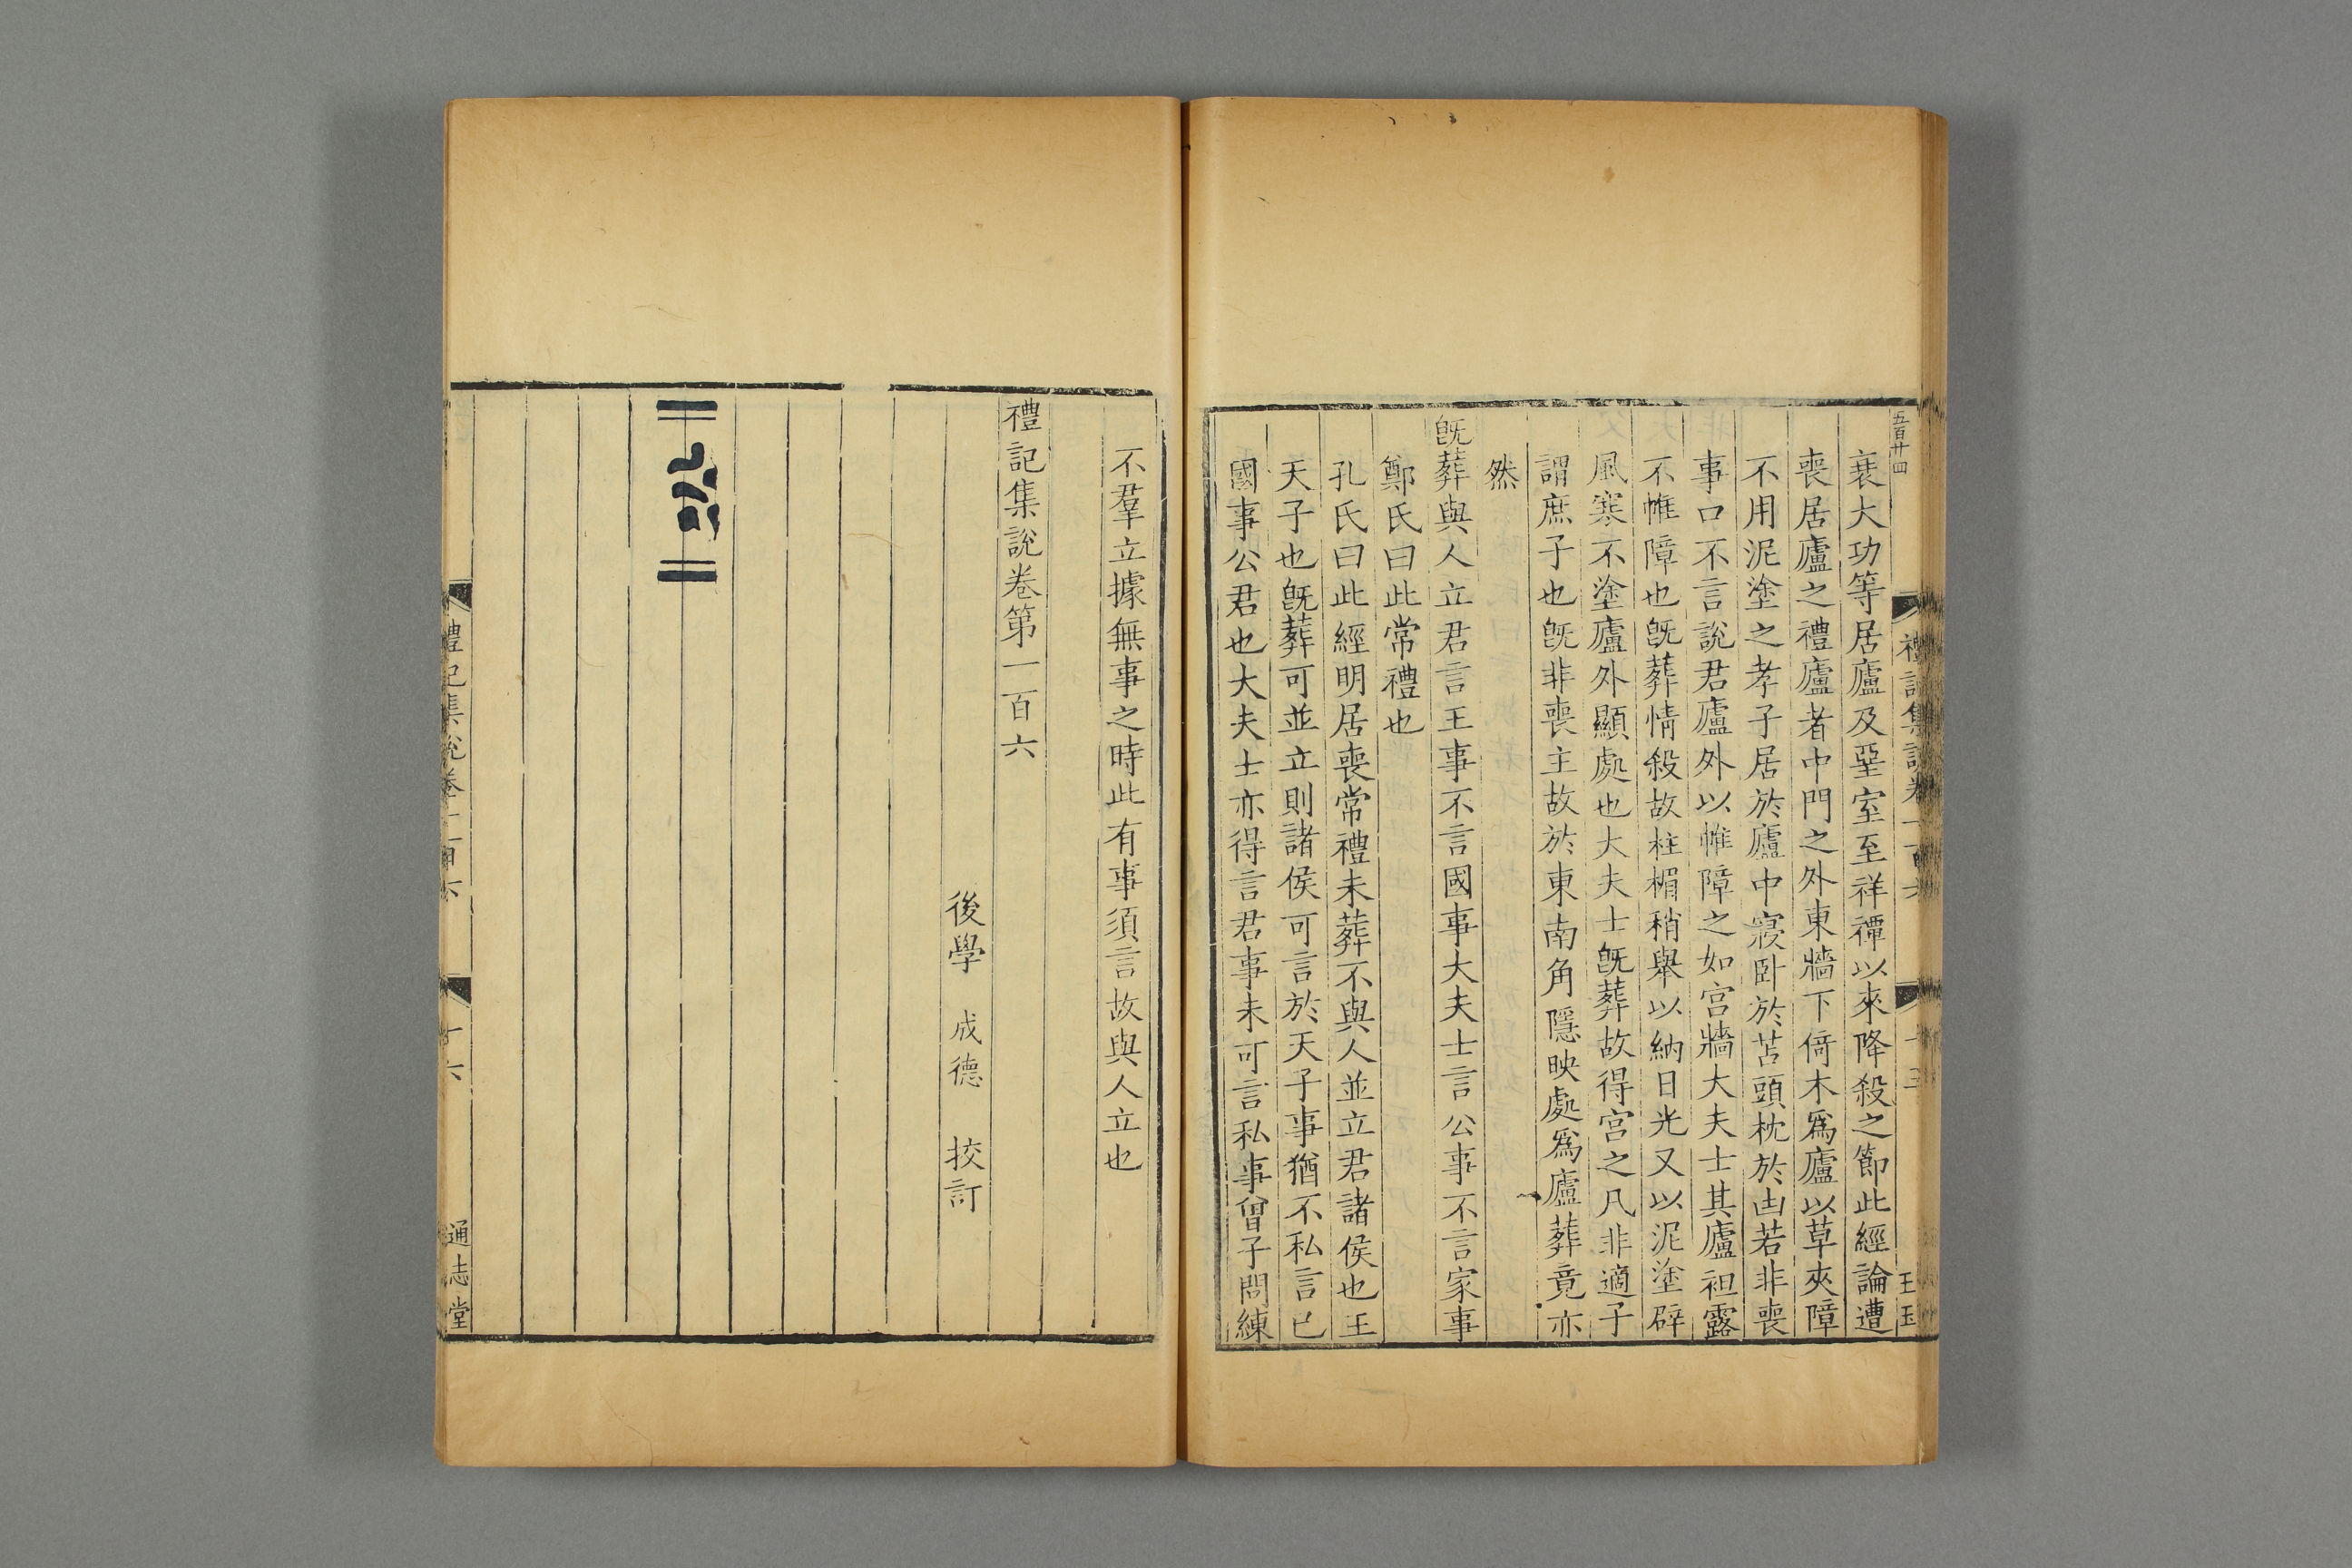 五百廿四
衰大功等居廬及堊室至祥禫以來降殺之節此經論遭
喪居廬之禮廬者中門之外東牆下倚木爲廬以草夾障
不用泥塗之孝子居於廬中寢卧於苫頭枕於凷若非喪
事口不言說君廬外以帷障之如宮牆大夫士其廬袒露
不帷障也旣葬情殺故柱楣稍舉以納日光又以泥塗辟
風寒不塗廬外顯處也大夫士旣葬故得宮之凡非適子
謂庶子也旣非喪主故於東南角隱映處爲廬葬竟亦
然
旣葬與人立君言王事不言國事大夫士言公事不言家事
鄭氏曰此常禮也
孔氏曰此經明居喪常禮未葬不與人並立君諸侯也王
天子也旣葬可並立則諸侯可言於天子事猶不私言已
國事公君也大夫士亦得言君事未可言私事曾子問練
不羣立據無事之時此有事須言故與人立也
禮記集說卷第一百六
後學 成德 挍訂
禮記集說卷一百六
十六
通志堂